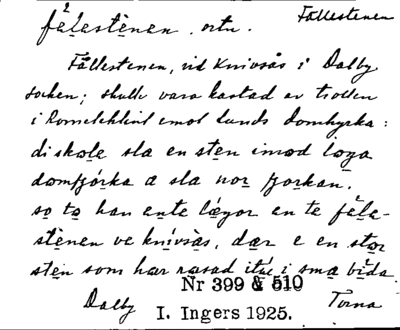 fålestènen, ortn. Fållestenen
Fållestenen, vid Knivsås i Dalby
socken; skulle vara kastad av trollen
i Romeleklint emot Lunds domkyrka:
di skole sla en sten imod loga
domtjórka a sla nor tjorkan.
so to han ente lægor en te fåle-
stènen ve knivsås, dær e en stor
sten som har rasad itu i sma bida
Nr 399 & 510
Dalby I. Ingers 1925. Torna